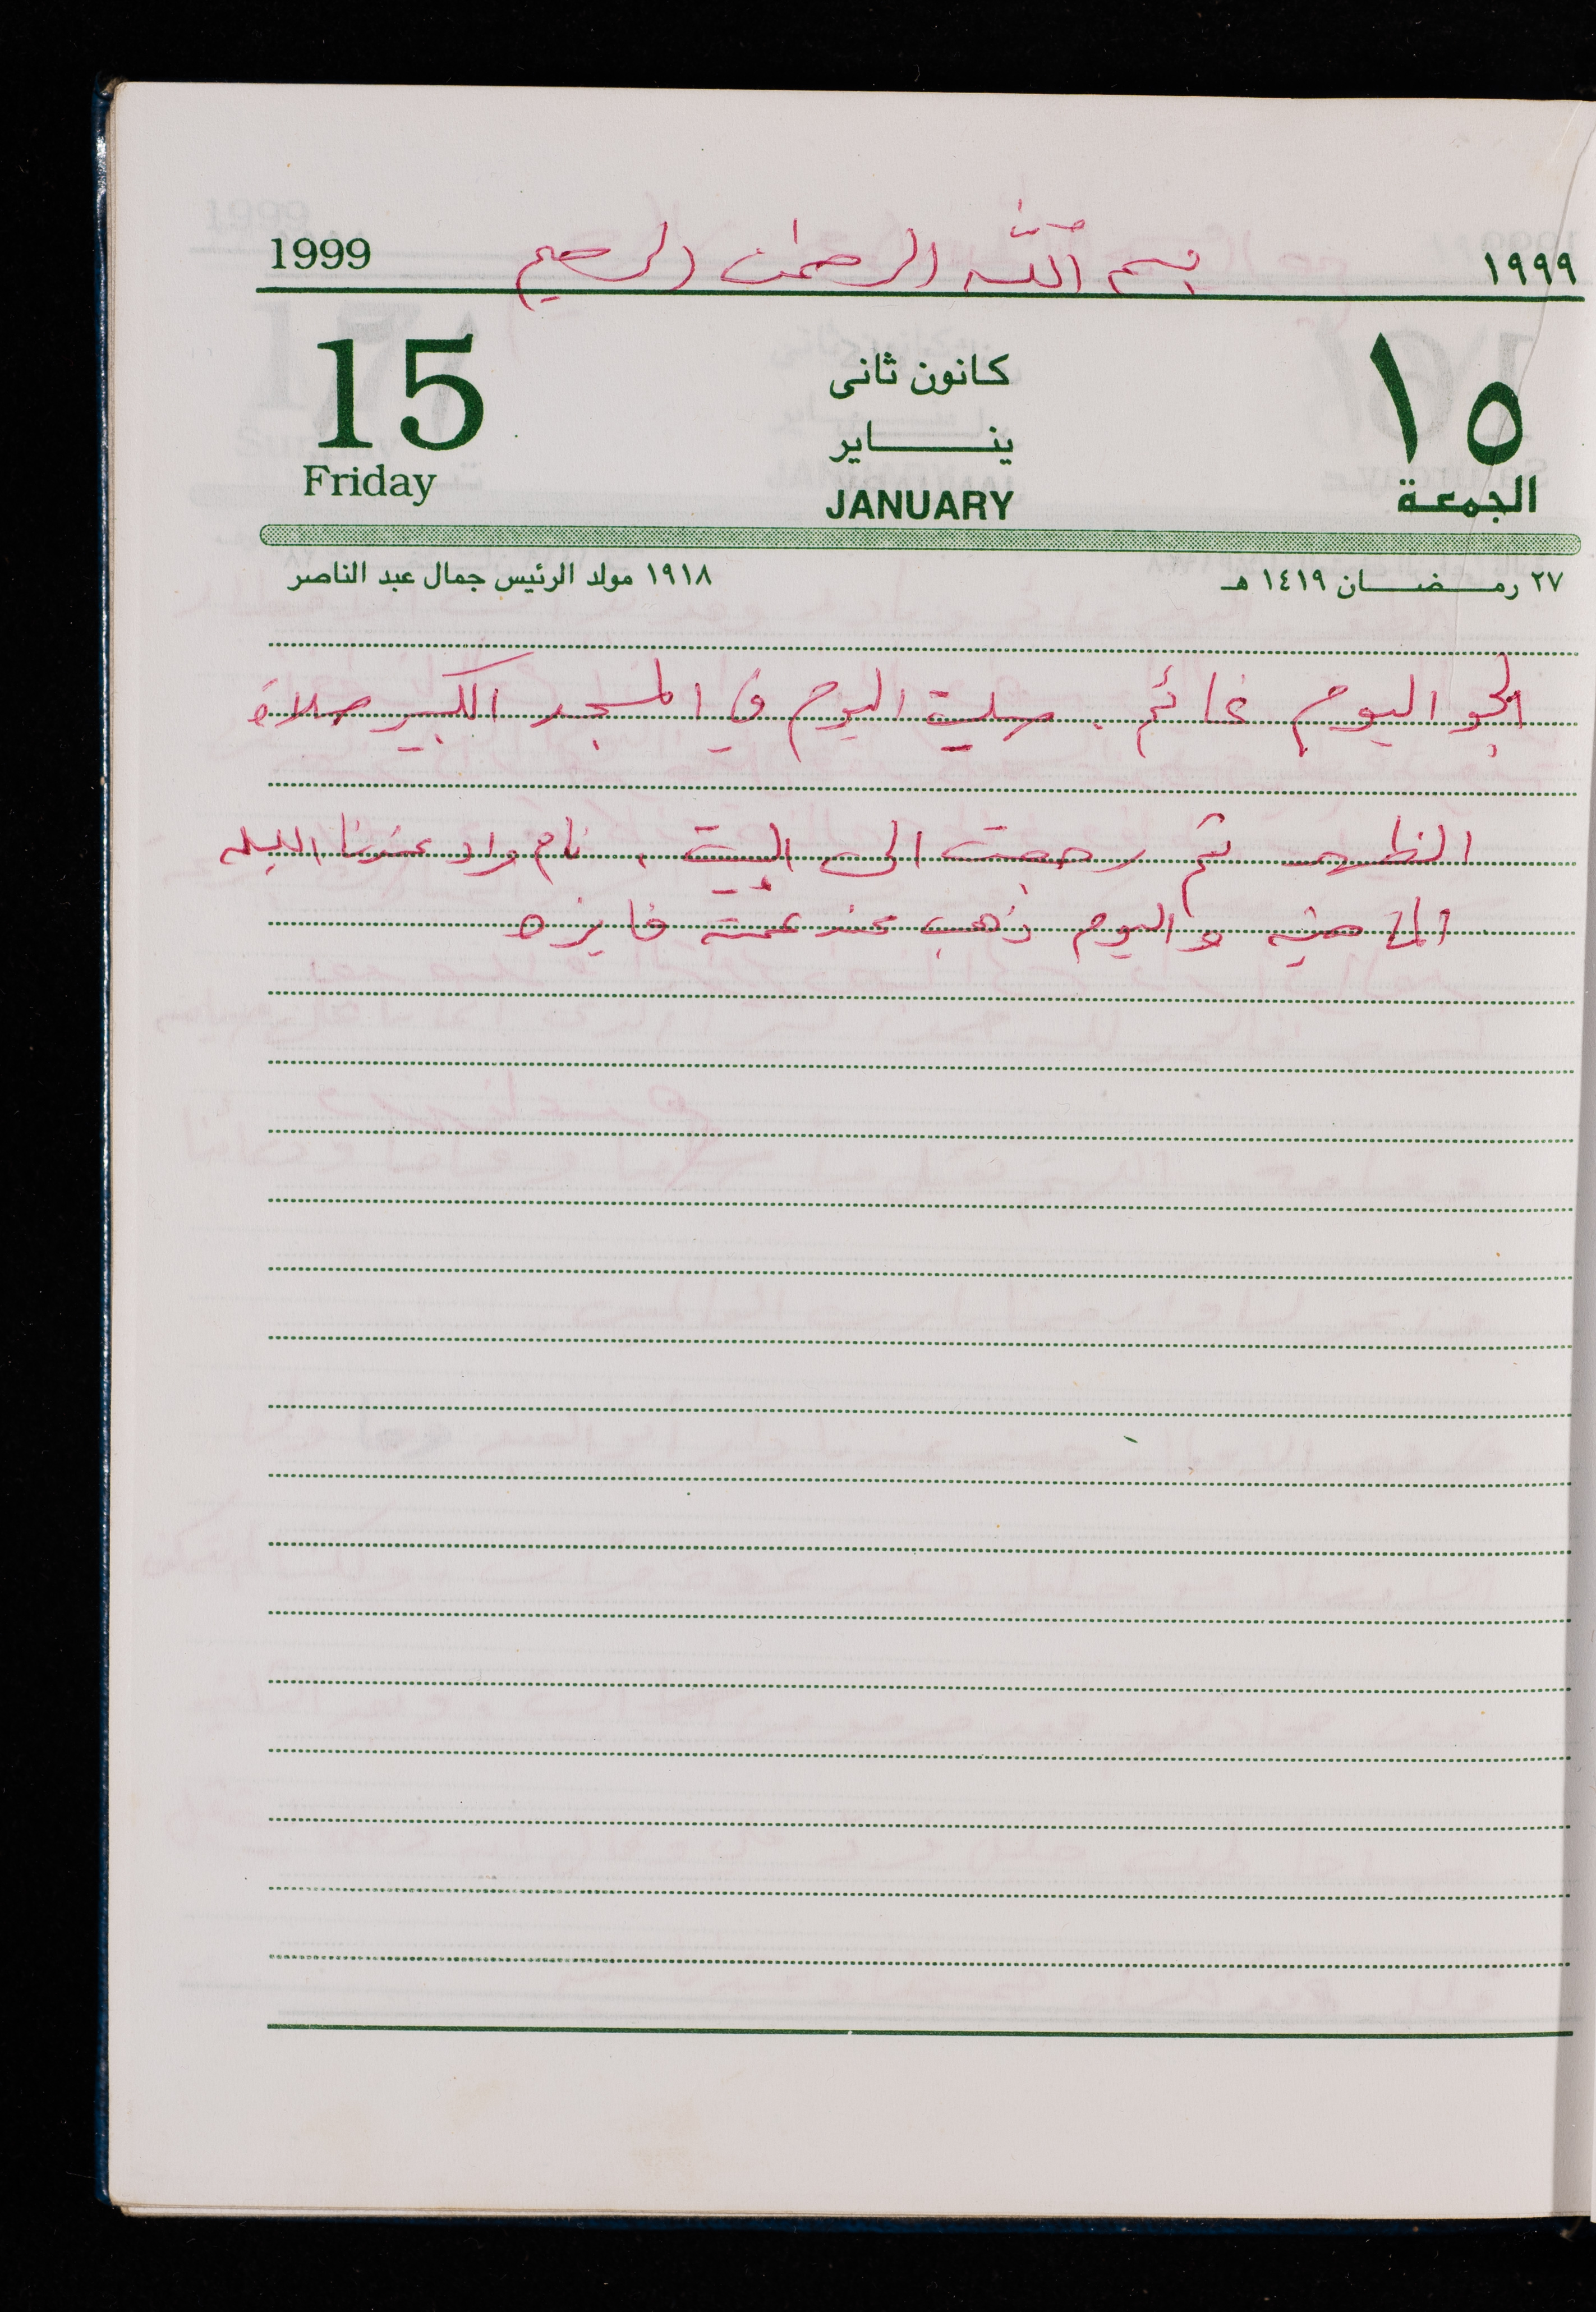 1999 بسم الله الرحمن الرحيم ١٩٩٩
15 كانون ثانى ١٥
يناير
Friday JANUARY الجمعة
٢٧ رمضان ١٤١٩ هـ ١٩١٨ مولد الرئيس جمال عبد الناصر
الجو اليوم غائم. صليت اليوم في المسجد الكبير صلاة
الظهر ثم رجعت الى البيت. نام عندنا الليله
الماضيه واليوم ذهب عند عمته فايزه